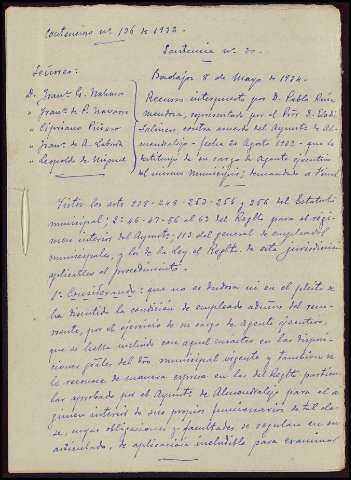 Contencioso nº 136 de 1932.
Sentencia nº 30.
Señores:
Badajoz 8 de Mayo de 1934.
D. Franco G. Naharro
" Franco de P. Navarro
" Cipriano Piñero
" Franco de A. Laborda
" Leopoldo de Miguel
Recurso interpuesto por D. Pablo Ruiz
Mendoza, representado por el Pror D. Eladio
Salinero, contra acuerdo del Ayuntº de Al-
mendralejo - fecha 20 Agosto 1932 - que le
destituyó de su cargo de Agente ejecutivo
del mismo Municipio; demandado el Fiscal
Vistos los arts 228-248-253-256 y 256 del Estatuto
municipal; 2º-46-47-56 al 63 del Reglto para el régi-
men interior del Ayuntº; 113 del general de empleados
municipales, y los de la Ley el Reglto de esta jurisdicción
aplicables al procedimiento.
1º Considerando: que no es dudoso ni en el pleito se
ha discutido la condición de empleado admvo del recu-
rrente, por el ejercicio de su cargo de agente ejecutivo,
que se halla incluido con aquel caracter en las disposi-
ciones grales del dro municipal vigente y tambien se
le reconoce de manera expresa en las del Reglto particu-
lar aprobado por el Ayuntº de Almendralejo para el ré-
gimen interior de sus propios funcionarios de tal cla-
se, cuyas obligaciones y facultades se regulan en su
articulado, de aplicación ineludible para examinar